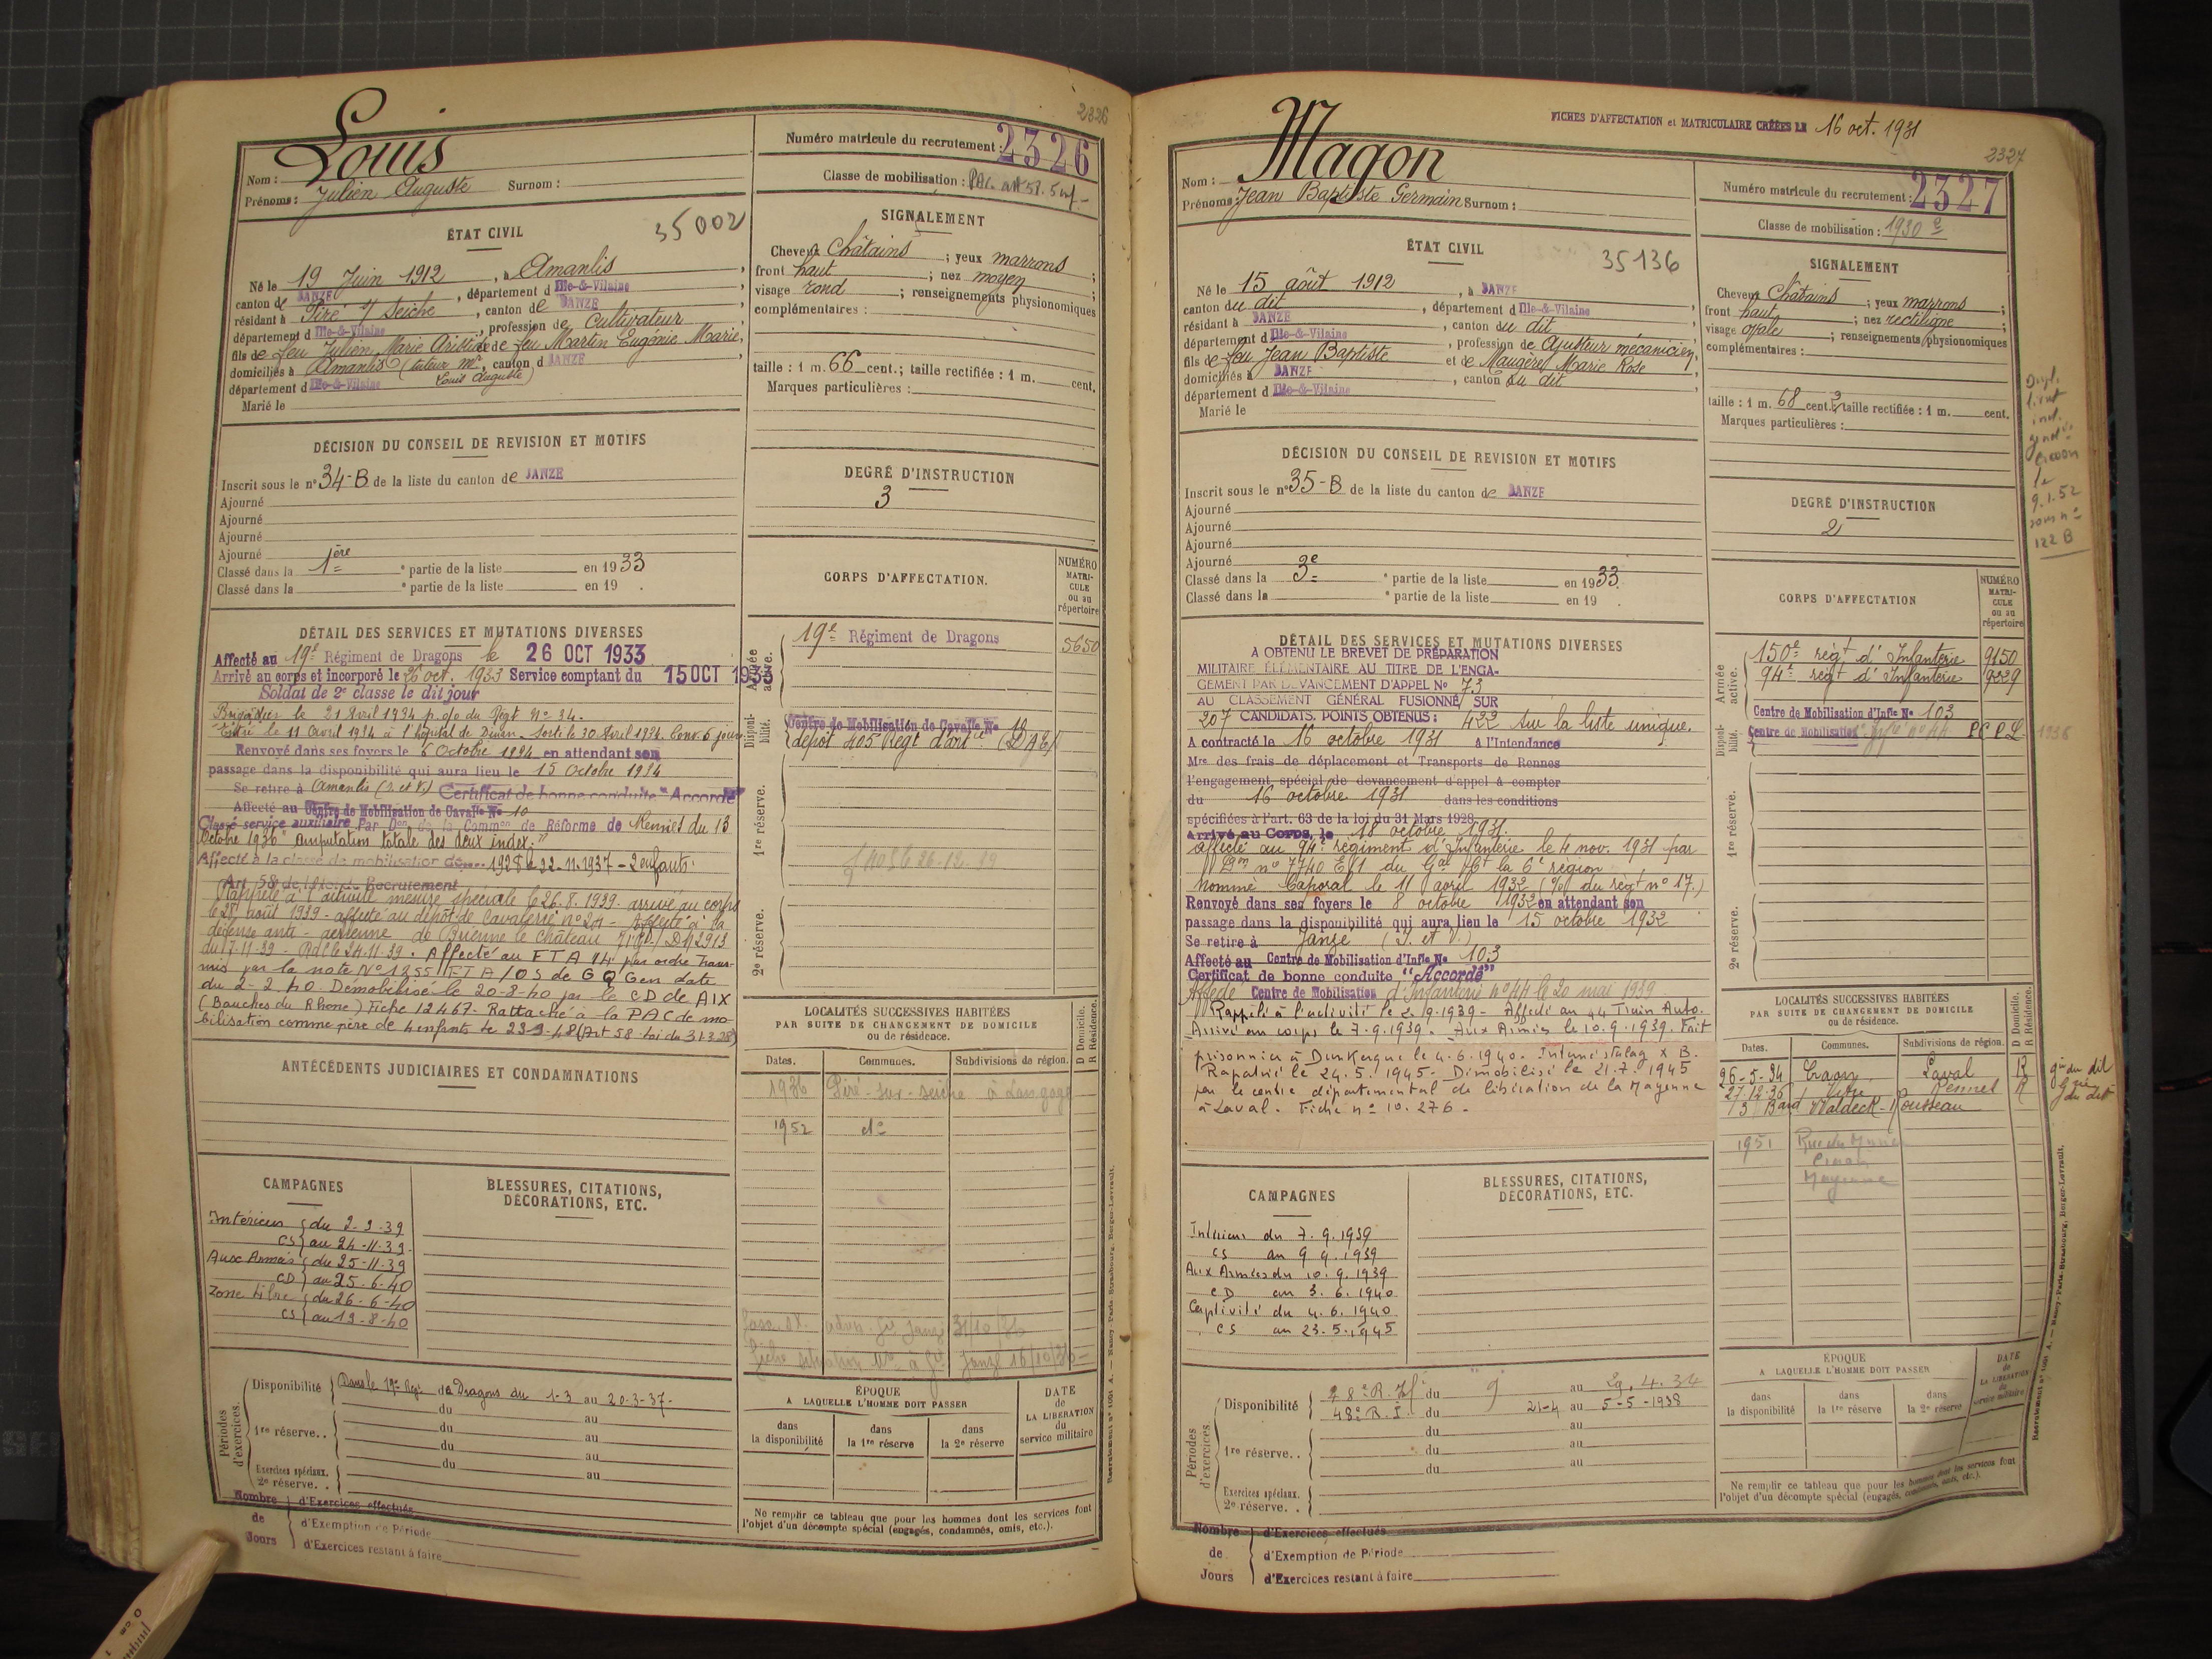 2326
Louis
Nom :
Prénoms : Julien Auguste Surnom :
Numéro matricule du recrutement : 2326
Classe de mobilisation :
ÉTAT CIVIL
35002
Né le 19 Juin 1912, à Amanlis,
canton de JANZE, département d Ille-&-Vilaine
résidant à Piré s/ Seiche, canton de JANZE,
département d Ille-&-Vilaine, profession de Cultivateur
fils de feu Julien Marie Aristide et de feu Martin Eugénie Marie,
domiciliés à Amanlis (tuteur Mr, canton d JANZE
Louis Auguste)
département d Ille-&-Vilaine
Marié le
SIGNALEMENT
Cheveux Châtains ; yeux marrons ;
front haut ; nez moyen ;
visage rond ; renseignements physionomiques
complémentaires :
taille : 1 m. 66 cent. ; taille rectifiée : 1 m. cent.
Marques particulières :
DÉCISION DU CONSEIL DE REVISION ET MOTIFS
Inscrit sous le n° 34-B de la liste du canton de JANZE
Ajourné
Ajourné
Ajourné
Ajourné
Classé dans la 1ère partie de la liste en 1933
Classé dans la e partie de la liste en 19 .
DEGRÉ D'INSTRUCTION
3
DÉTAIL DES SERVICES ET MUTATIONS DIVERSES
Affecté au 19e Régiment de Dragons le 26 OCT 1933
Arrivé au corps et incorporé le 26 oct. 1933 Service comptant du 15 OCT 1933
Soldat de 2e classe le dit jour
Brigadier le 21 avril 1934 p. o/o du Régt N° 34.
Entré le 11 avril 1934 à l'hôpital de Dinan. Sorti le 30 avril 1934. Conv. 6 jours
Renvoyé dans ses foyers le 6 Octobre 1934 en attendant son
passage dans la disponibilité qui aura lieu le 15 Octobre 1934
Se retire à Amanlis (I. et V.) Certificat de bonne conduite "Accordé"
Affecté au Centre de Mobilisation de Cavalie No 10
Classé service auxiliaire Par Don de la Commen de Réforme de Rennes du 13
Octobre 1936 "amputation totale des deux index."
Affecté à la classe de mobilisation de 1928 le 22.11.1937 - 2 enfants.
Art 58 de la loi de Recrutement
Rappelé à l'activité mesure spéciale le 26.8.1939. arrivé au corps
le 28 août 1939 - affecté au dépôt de Cavalerie n° 24 - Affecté à la
défense anti-aérienne de Brienne le Château
du 17-11-39 - Affecté au FTA 14 par ordre Trans-
mis par la note N° 1255 FTA/OS de G Q Gen date
du 2-2-40 Démobilisé le 20-8-40 par le CD de AIX
(Bouches du Rhône) Fiche 12467. Rattaché à la PAC de mo-
bilisation comme père de 4 enfants le 23-9-48 (Art 58 loi du 31.3.28)
CORPS D'AFFECTATION.
NUMÉRO MATRI-CULE ou au répertoire
Armée active.
19e Régiment de Dragons 5650
Disponi-bilité.
Centre de Mobilisation de Cavalie No 10
dépôt 405 Régt d'artie (DAE)
1re réserve.
2e réserve.
ANTÉCÉDENTS JUDICIAIRES ET CONDAMNATIONS
LOCALITÉS SUCCESSIVES HABITÉES
PAR SUITE DE CHANGEMENT DE DOMICILE
ou de résidence.
D Domicile.
R Résidence.
Dates. Communes. Subdivisions de région.
1936 Piré-sur-seiche
1952 do
CAMPAGNES
Intérieur du 2-9-39
CS au 24-11-39
Aux Armées du 25-11-39
CD au 25-6-40
Zone libre du 26-6-40
CS au 19-8-40
BLESSURES, CITATIONS,
DÉCORATIONS, ETC.
Périodes d'exercices.
Disponibilité Dans le 19e Régt de Dragons du 1-3 au 20-3-37.
du au
1re réserve. . du au
du au
Exercices spéciaux. du au
2e réserve. .
ÉPOQUE
A LAQUELLE L'HOMME DOIT PASSER
dans la disponibilité
dans la 1re réserve
dans la 2e réserve
DATE de LA LIBÉRATION du service militaire
Ne remplir ce tableau que pour les hommes dont les services font
l'objet d'un décompte spécial (engagés, condamnés, omis, etc.).
Nombre de Jours
d'Exercices effectués
d'Exemption de Période
d'Exercices restant à faire
FICHES D'AFFECTATION et MATRICULAIRE CRÉÉES LE 16 oct. 1931
2327
Magon
Nom :
Prénoms : Jean Baptiste Germain Surnom :
Numéro matricule du recrutement : 2327
Classe de mobilisation : 1930
ÉTAT CIVIL
35136
Né le 15 août 1912, à JANZE
canton du dit, département d Ille-&-Vilaine
résidant à JANZE, canton du dit
département d Ille-&-Vilaine, profession de Ajusteur mécanicien,
fils de feu Jean Baptiste et de Maugère Marie Rose
domiciliés à JANZE, canton du dit
département d Ille-&-Vilaine
Marié le
SIGNALEMENT
Cheveux Châtains ; yeux marrons ;
front haut ; nez rectiligne ;
visage ovale ; renseignements physionomiques
complémentaires :
taille : 1 m. 68 cent. ; taille rectifiée : 1 m. cent.
Marques particulières :
le
9.1.52
sous n°
122 B
DÉCISION DU CONSEIL DE REVISION ET MOTIFS
Inscrit sous le n° 35-B de la liste du canton de JANZE
Ajourné
Ajourné
Ajourné
Ajourné
Classé dans la 3e partie de la liste en 1933.
Classé dans la e partie de la liste en 19 .
DEGRÉ D'INSTRUCTION
2
DÉTAIL DES SERVICES ET MUTATIONS DIVERSES
A OBTENU LE BREVET DE PRÉPARATION
MILITAIRE ÉLÉMENTAIRE AU TITRE DE L'ENGA-
GEMENT PAR DEVANCEMENT D'APPEL No 73
AU CLASSEMENT GÉNÉRAL FUSIONNÉ SUR
207 CANDIDATS. POINTS OBTENUS : 422 sur la liste unique.
A contracté le 16 octobre 1931 A l'Intendance
Mre des frais de déplacement et Transports de Rennes
l'engagement spécial de devancement d'appel à compter
du 16 octobre 1931 dans les conditions
spécifiées à l'art. 63 de la loi du 31 Mars 1928
Arrivé au Corps, le 18 octobre 1931.
affecté au 94e régiment d'Infanterie le 4 nov. 1931 par
n° 7740 du Gal Ct la 6e région
Nommé Caporal le 11 avril 1932 (o/o du régt n° 17.)
Renvoyé dans ses foyers le 8 octobre 1932 en attendant son
passage dans la disponibilité qui aura lieu le 15 octobre 1932
Se retire à Janzé (I. et V.)
Affecté au Centre de Mobilisation d'Infie No 103
Certificat de bonne conduite "Accordé"
Affecté Centre de Mobilisation d'Infanterie n° 44 le 20 mai 1939
Rappelé à l'activité le 2.9.1939 - Affecté au 44 Train Auto.
Arrivé au corps le 7.9.1939. Aux Armées le 10.9.1939. Fait
prisonnier à Dunkerque le 4.6.1940. Interné stalag X B.
Rapatrié le 24.5.1945 - Démobilisé le 21.7.1945
par le centre départemental de libération de la Mayenne
à Laval. Fiche n° 10.276.
CORPS D'AFFECTATION
NUMÉRO MATRI-CULE ou au répertoire
Armée active.
150e régt d'Infanterie 9150
94e régt d'Infanterie
Disponi-bilité.
Centre de Mobilisation d'Infie No 103
Centre de Mobilisation
1re réserve.
2e réserve.
LOCALITÉS SUCCESSIVES HABITÉES
PAR SUITE DE CHANGEMENT DE DOMICILE
ou de résidence.
D Domicile.
R Résidence.
Dates. Communes. Subdivisions de région.
26-5-34 Craon Laval R
27-12-36 Vitré Rennes R
13 Bard Waldeck-Rousseau
1951
Craon
Mayenne
CAMPAGNES
Intérieur du 7.9.1939
CS au 9.9.1939
Aux Armées du 10.9.1939
CD au 3.6.1940
Captivité du 4.6.1940
CS au 23.5.1945
BLESSURES, CITATIONS,
DÉCORATIONS, ETC.
Périodes d'exercices.
Disponibilité du 9 au 29.4.34
48e R.I. du 21-4 au 5-5-1938
du au
1re réserve. . du au
du au
Exercices spéciaux.
2e réserve. .
ÉPOQUE
A LAQUELLE L'HOMME DOIT PASSER
dans la disponibilité
dans la 1re réserve
dans la 2e réserve
DATE de LA LIBÉRATION du service militaire
Ne remplir ce tableau que pour les hommes dont les services font
l'objet d'un décompte spécial (engagés, condamnés, omis, etc.).
Nombre de Jours
d'Exercices effectués
d'Exemption de Période
d'Exercices restant à faire